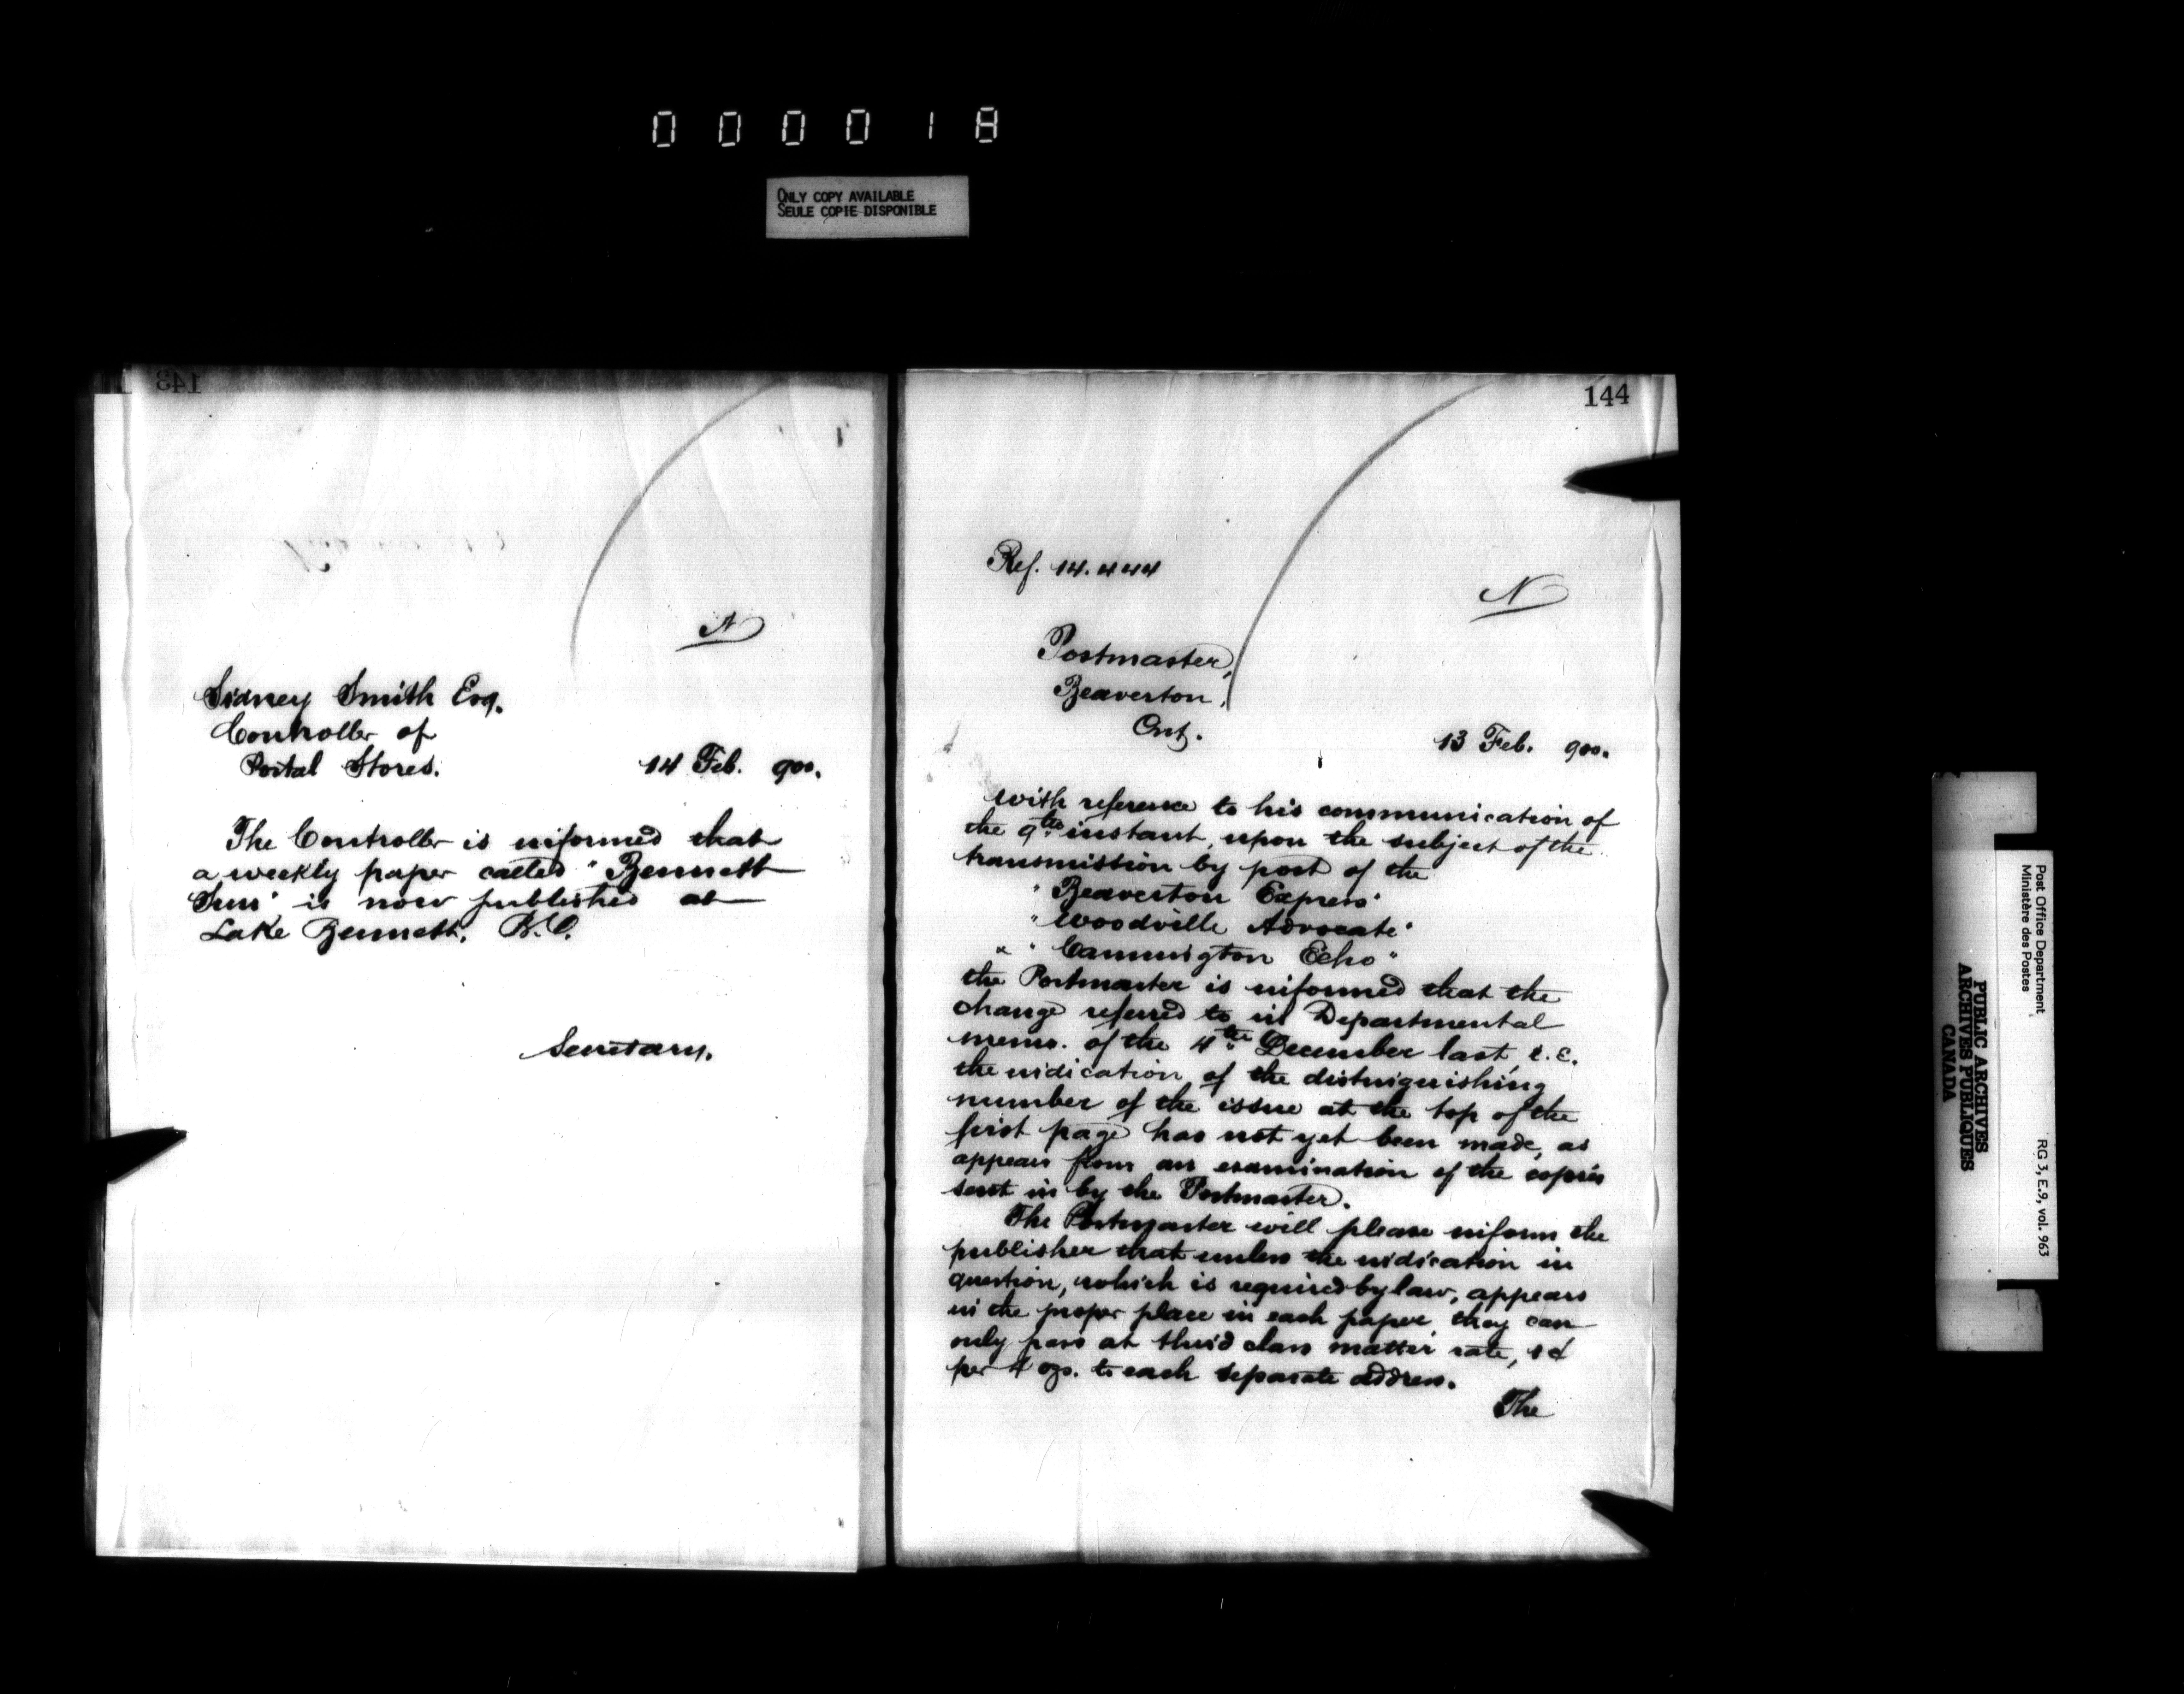 000018
ONLY COPY AVAILABLE
SEULE COPIE DISPONIBLE
143
N
Sidney Smith Esq.
Controller of
Postal Stores.
14 Feb. 900.
The Controller is informed that
a weekly paper called "Bennett
Sun" is now published at
Lake Bennett, B.C.
Secretary.
144
Ref. 14.444
N
Postmaster,
Beaverton,
Ont.
13 Feb. 900.
With reference to his communication of
the 9th instant, upon the subject of the
transmission by post of the
"Beaverton Express"
"Woodville Advocate"
& "Cannington Echo"
the Postmaster is informed that the
change referred to in Departmental
memo. of the 4th December last, i.e.
the indication of the distinguishing
number of the issue at the top of the
first page has not yet been made, as
appears from an examination of the copies
sent in by the Postmaster.
The Postmaster will please inform the
publisher that unless the indication in
question, which is required by law, appears
in the proper place in each paper, they can
only pass at third class matter rate, 1¢
per 4 ozs. to each separate address.
The
Post Office Department
Ministère des Postes
RG 3, E.9, vol. 963
PUBLIC ARCHIVES
ARCHIVES PUBLIQUES
CANADA